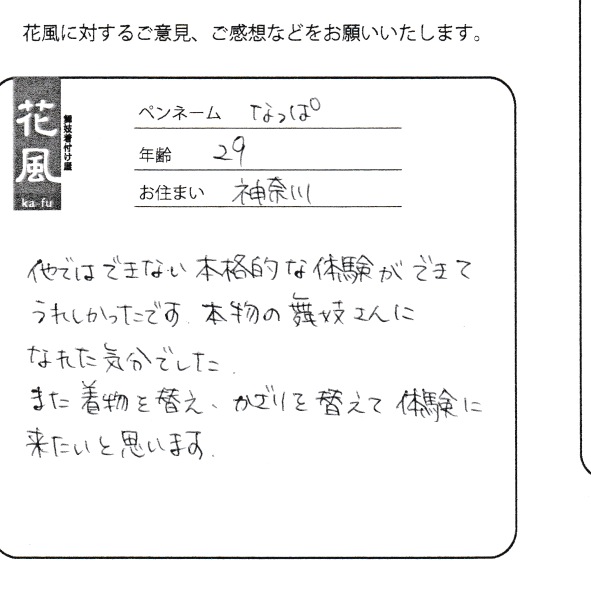 花風に対するご意見、ご感想などをお願いいたします。
花風
舞妓着付け屋
ka fu
ペンネーム なっぱ
年齢 29
お住まい 神奈川
他ではできない本格的な体験ができて
うれしかったです。本物の舞妓さんに
なれた気分でした。
また着物を替え、かざりを替えて体験に
来たいと思います。